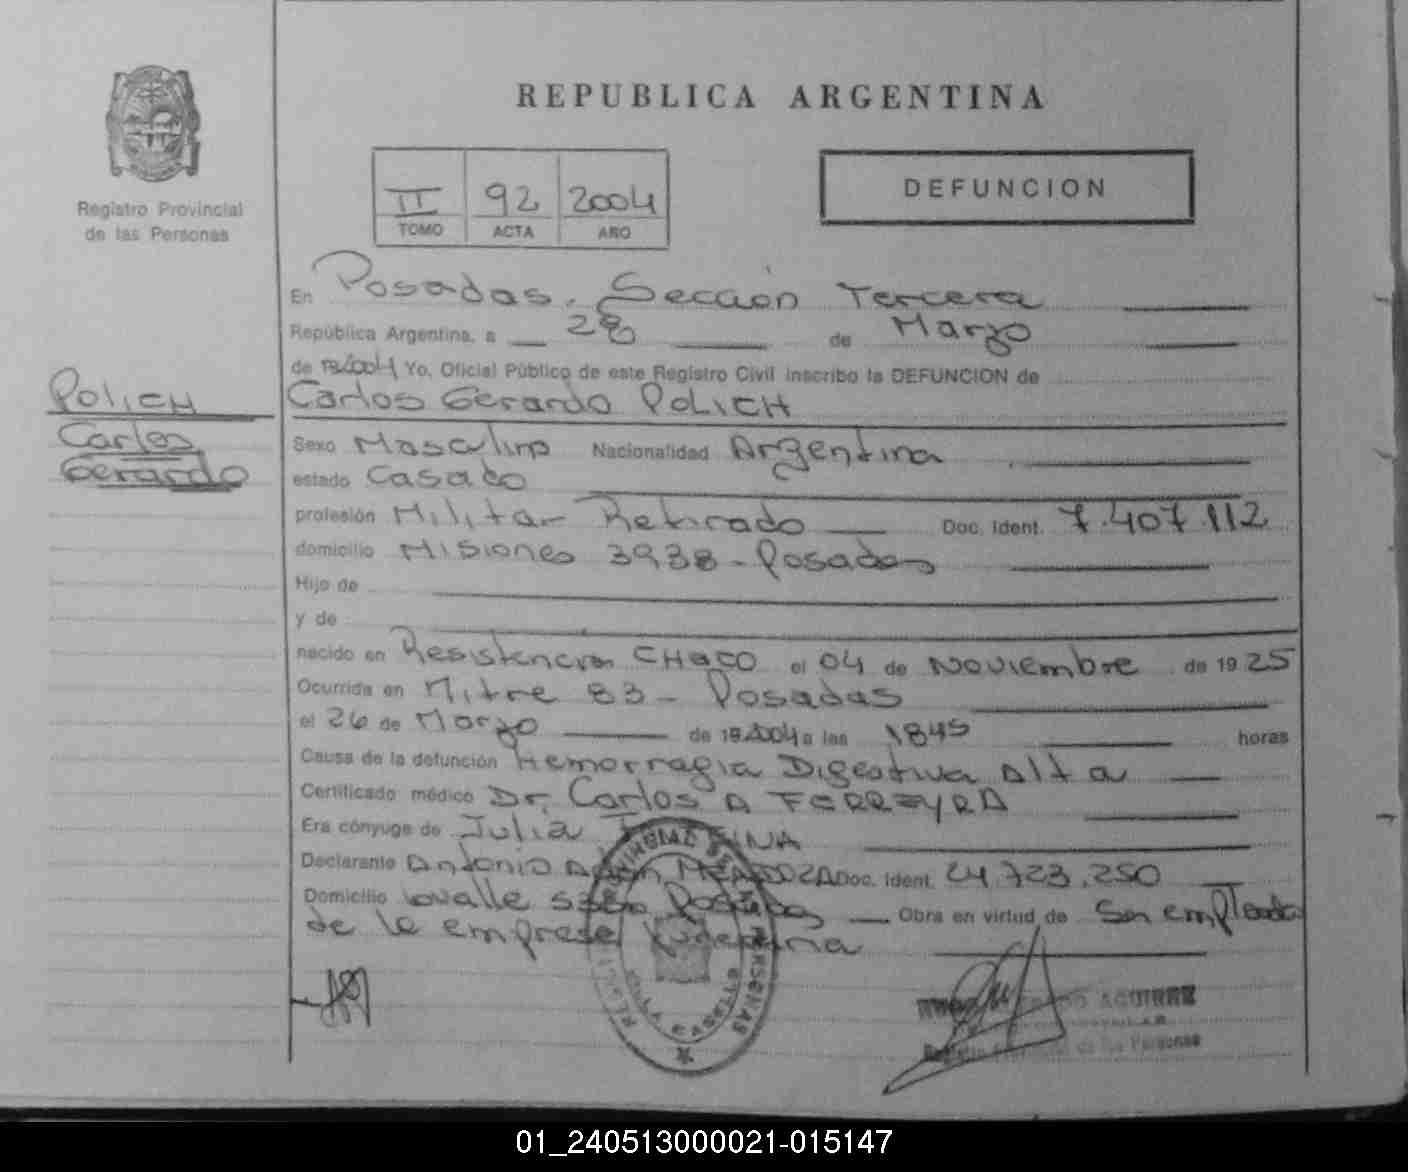 REPUBLICA ARGENTINA
Registro Provincial
de las Personas
II 92 2004
TOMO ACTA AÑO
DEFUNCION
En Posadas. Sección Tercera
República Argentina, a 28 de Marzo
de 19/2004 Yo, Oficial Público de este Registro Civil inscribo la DEFUNCION de
POLICH
Carlos
Gerardo
Carlos Gerardo POLICH
Sexo Masculino Nacionalidad Argentina
estado Casado
profesión Militar Retirado Doc. Ident. 7.407.112
domicilio Misiones 3938 - Posadas
Hijo de
y de
nacido en Resistencia CHACO el 04 de Noviembre de 1925
Ocurrida en Mitre 83 - Posadas
el 26 de Marzo de 19 2004 a las 1845 horas
Causa de la defunción Hemorragia Digestiva Alta
Certificado médico Dr. Carlos A FERREYRA
Era cónyuge de Julia
Declarante Antonio MENDOZA Doc. Ident. 24.723.250
Domicilio Lavalle Posadas Obra en virtud de Ser empleado
de la empresa
AGUIRRE
Registro Provincial de las Personas
01_240513000021-015147